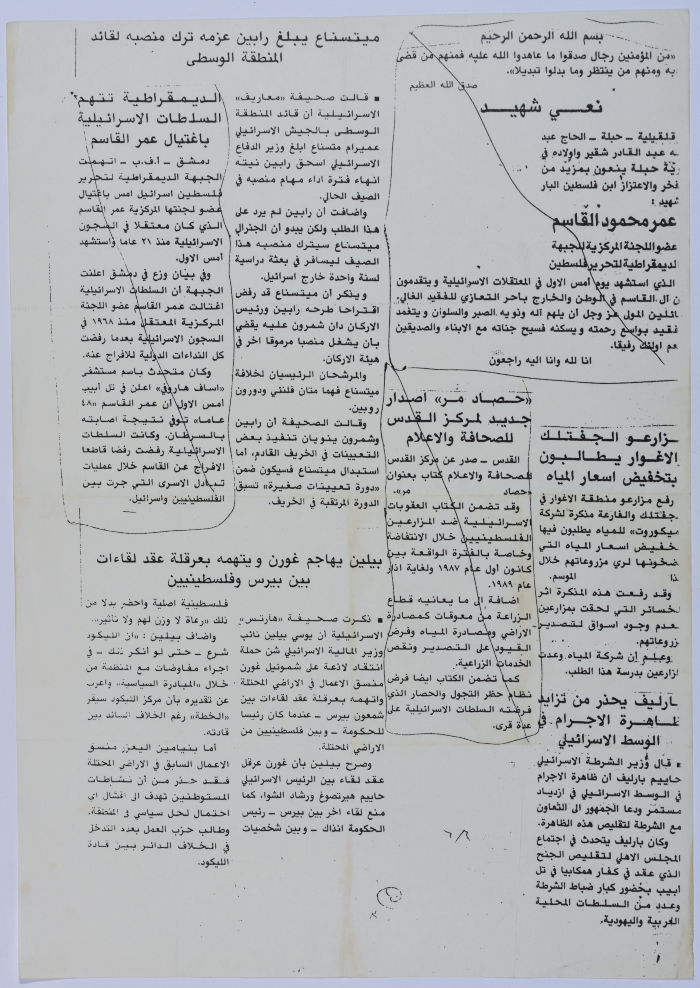 بسم الله الرحمن الرحيم
«من المؤمنين رجال صدقوا ما عاهدوا الله عليه فمنهم من قضى
به ومنهم من ينتظر وما بدلوا تبديلا».
صدق الله العظيم
نعي شهيد
قلقيلية - حبلة - الحاج عبد
ه عبد القادر شقير واولاده في
ية حبلة ينعون بمزيد من
فخر والاعتزاز ابن فلسطين البار
شهيد :
عمر محمود القاسم
عضو اللجنة المركزية للجبهة
لديمقراطية لتحرير فلسطين
الذي استشهد يوم امس الاول في المعتقلات الاسرائيلية ويتقدمون
ن آل القاسم في الوطن والخارج بأحر التعازي للفقيد الغالي.
ائلين المولى عز وجل أن يلهم آله وذويه الصبر والسلوان ويتغمد
فقيد بواسع رحمته ويسكنه فسيح جناته مع الابناء والصديقين
هم اولئك رفيقا.
انا لله وانا اليه راجعون
زارعو الجفتلك
الاغوار يطالبون
بتخفيض اسعار المياه
رفع مزارعو منطقة الاغوار في
جفتلك والفارعة مذكرة لشركة
ميكوروت» للمياه يطلبون فيها
خفيض اسعار المياه التي
ضخونها لري مزروعاتهم خلال
ذا الموسم.
وقد رفعت هذه المذكرة اثر
لخسائر التي لحقت بمزارعين
عدم وجود اسواق لتصدير
زروعاتهم.
وعلم أن شركة المياه وعدت
زارعين بدرسة هذا الطلب.
ارليف يحذر من تزايد
ظاهرة الاجرام في
الوسط الاسرائيلي
قال وزير الشرطة الاسرائيلي
حاييم بارليف أن ظاهرة الاجرام
في الوسط الاسرائيلي في ازدياد
مستمر ودعا الجمهور الى التعاون
مع الشرطة لتقليص هذه الظاهرة.
وكان بارليف يتحدث في اجتماع
المجلس الاهلي لتقليص الجنح
الذي عقد في كفار همكابيا في تل
ابيب بحضور كبار ضباط الشرطة
وعدد من السلطات المحلية
العربية واليهودية.
«حصاد مر» اصدار
جديد لمركز القدس
للصحافة والاعلام
القدس - صدر عن مركز القدس
للصحافة والاعلام كتاب بعنوان
«حصاد مر».
وقد تضمن الكتاب العقوبات
الاسرائيلية ضد المزارعين
الفلسطينيين خلال الانتفاضة
وخاصة بالفترة الواقعة بين
كانون اول عام ١٩٨٧ ولغاية اذار
عام ١٩٨٩.
اضافة الى ما يعانيه قطاع
الزراعة من معوقات كمصادرة
الاراضي ومصادرة المياه وفرض
القيود على التصدير ونقص
الخدمات الزراعية.
كما تضمن الكتاب ايضا فرض
نظام حظر التجول والحصار الذي
فرضته السلطات الاسرائيلية على
عدة قرى.
ميتسناع يبلغ رابين عزمه ترك منصبه لقائد
المنطقة الوسطى
قالت صحيفة «معاريف»
الاسرائيلية أن قائد المنطقة
الوسطى بالجيش الاسرائيلي
عميرام متسناع ابلغ وزير الدفاع
الاسرائيلي اسحق رابين نيته
انهاء فترة اداء مهام منصبه في
الصيف الحالي.
واضافت أن رابين لم يرد على
هذا الطلب ولكن يبدو أن الجنرال
ميتسناع سيترك منصبه هذا
الصيف ليسافر في بعثة دراسية
لسنة واحدة خارج اسرائيل.
ويذكر أن ميتسناع قد رفض
اقتراحا طرحه رابين ورئيس
الاركان دان شمرون عليه يقضي
بأن يشغل منصبا مرموقا اخر في
هيئة الاركان.
والمرشحان الرئيسيان لخلافة
ميتسناع فهما متان فلنئي ودورون
روبين.
وقالت الصحيفة أن رابين
وشمرون ينويان تنفيذ بعض
التعيينات في الخريف القادم، اما
استبدال ميتسناع فسيكون ضمن
«دورة تعيينات صغيرة» تسبق
الدورة المرتقبة في الخريف.
الديمقراطية تتهم
السلطات الاسرائيلية
باغتيال عمر القاسم
دمشق - ا.ف.ب - اتهمت
الجبهة الديمقراطية لتحرير
فلسطين اسرائيل امس باغتيال
عضو لجنتها المركزية عمر القاسم
الذي كان معتقلا في السجون
الاسرائيلية منذ ٢١ عاما واستشهد
امس الاول.
وفي بيان وزع في دمشق اعلنت
الجبهة أن السلطات الاسرائيلية
اغتالت عمر القاسم عضو اللجنة
المركزية المعتقل منذ ١٩٦٨ في
السجون الاسرائيلية بعدما رفضت
كل النداءات الدولية للافراج عنه.
وكان متحدث باسم مستشفى
«اساف هاروفي» اعلن في تل أبيب
امس الاول أن عمر القاسم «٤٨
عاما» توفي نتيجة اصابته
بالسرطان. وكانت السلطات
الاسرائيلية رفضت رفضا قاطعا
الافراج عن القاسم خلال عمليات
تبادل الاسرى التي جرت بين
الفلسطينيين واسرائيل.
بيلين يهاجم غورن و يتهمه بعرقلة عقد لقاءات
بين بيرس وفلسطينيين
ذكرت صحيفة «هارتس»
الاسرائيلية أن يوسي بيلين نائب
وزير المالية الاسرائيلي شن حملة
انتقاد لاذعة على شموئيل غورن
منسق الاعمال في الاراضي المحتلة
واتهمه بعرقلة عقد لقاءات بين
شمعون بيرس - عندما كان رئيسا
للحكومة - وبين فلسطينيين من
الاراضي المحتلة.
وصرح بيلين بأن غورن عرقل
عقد لقاء بين الرئيس الاسرائيلي
حاييم هيرتصوغ ورشاد الشوا، كما
منع لقاء اخر بين بيرس - رئيس
الحكومة انذاك - وبين شخصيات
فلسطينية اصلية واحضر بدلا من
ذلك «رعاة لا وزن لهم ولا تأثير..
واضاف بيلين : «ان الليكود
شرع - حتى لو انكر ذلك - في
اجراء مفاوضات مع المنظمة من
خلال «المبادرة السياسية» واعرب
عن تقديره بأن مركز الليكود سيقر
«الخطة» رغم الخلاف السائد بين
قادته.
أما بنيامين اليعزر منسق
الاعمال السابق في الاراضي المحتلة
فقد حذر من أن نشاطات
المستوطنين تهدف الى افشال اي
احتمال لحل سياسي في المنطقة.
وطالب حزب العمل بعدم التدخل
في الخلاف الدائر بين قادة
الليكود.